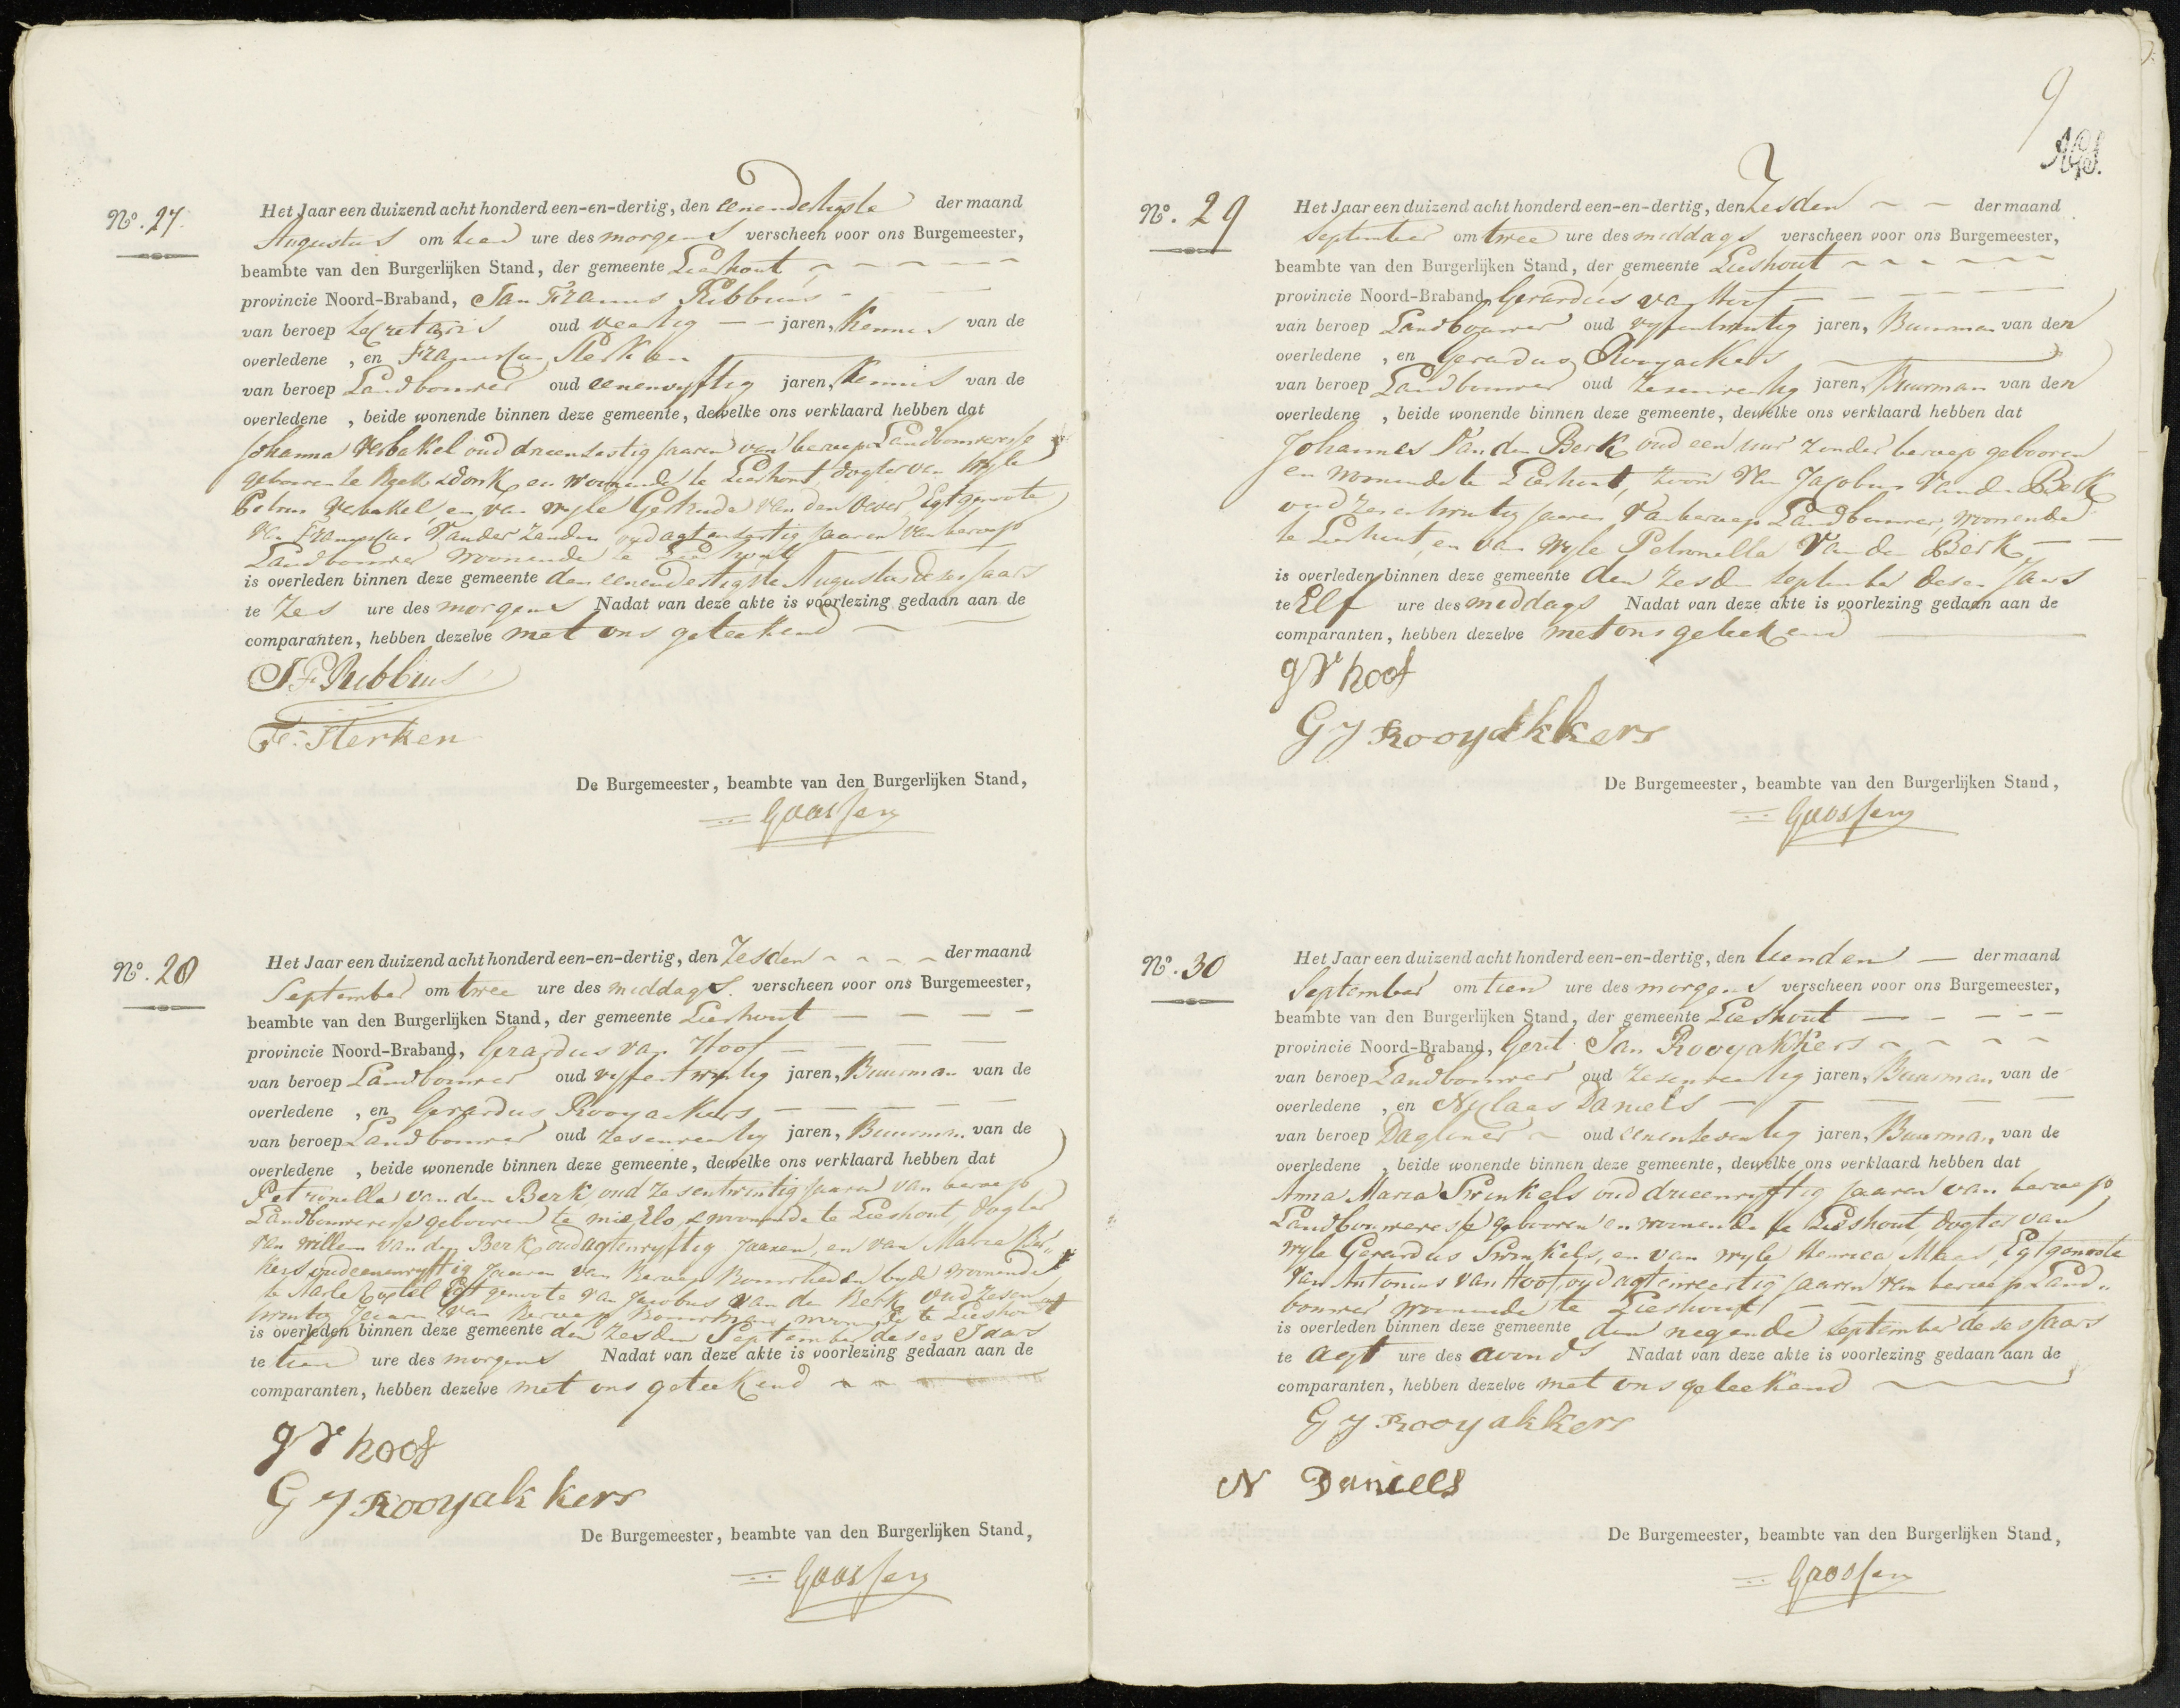 No. 27.
Het Jaar een duizend acht honderd een-en-dertig, den eenendertigste der maand
Augustus om tien ure des morgens verscheen voor ons Burgemeester,
beambte van den Burgerlijken Stand, der gemeente Lieshout
provincie Noord-Braband, Jan Frans Ribbius
van beroep Secretaris oud veertig jaren, Kennis van de
overledene , en Franciscus Sterken
van beroep Landbouwer oud eenenvyftig jaren, Kennis van de
overledene , beide wonende binnen deze gemeente, dewelke ons verklaard hebben dat
Johanna Verbakel oud drieensestig jaaren van beroep Landbouweresse
gebooren te Beek & Donk en woonende te Lieshout, dogter van wyle
Petrus Verbakel en van wyle Gertruda van den Oever, Egtgenoote
van Franciscus van der Zanden oud agtensestig jaaren van beroep
Landbouwer woonende te Lieshout
is overleden binnen deze gemeente den eenendertigste Augustus deses jaars
te Zes ure des morgens Nadat van deze akte is voorlezing gedaan aan de
comparanten, hebben dezelve met ons geteekend
J F Ribbius
F: Sterken
De Burgemeester, beambte van den Burgerlijken Stand,
Goossens
No. 28
Het Jaar een duizend acht honderd een-en-dertig, den Zesden der maand
September om twee ure des middags verscheen voor ons Burgemeester,
beambte van den Burgerlijken Stand, der gemeente Lieshout
provincie Noord-Braband, Gerardus van Hoof
van beroep Landbouwer oud vyfentwintig jaren, Buurman van de
overledene , en Gerardus Rooyackers
van beroep Landbouwer oud zesenveertig jaren, Buurman van de
overledene , beide wonende binnen deze gemeente, dewelke ons verklaard hebben dat
Petronella van den Berk oud zesentwintig jaaren van beroep
Landbouweresse gebooren te Mierlo, & woonende te Lieshout, dogter
van Willem van den Berk oud agtenvyftig jaaren, en van Maria
kers oud eenenvyftig jaaren van beroep Bouwlieden byde woonende
te Aarle Rixtel Egtgenoote van Jacobus van den Berk oud Zesen
twintig jaaren van beroep Bouwman woonende te Lieshout
is overleden binnen deze gemeente den zesden September deses Jaars
te tien ure des morgens Nadat van deze akte is voorlezing gedaan aan de
comparanten, hebben dezelve met ons geteekend
g V hoof
G J Rooyakkers
De Burgemeester, beambte van den Burgerlijken Stand,
Goossens
9
No. 29
Het Jaar een duizend acht honderd een-en-dertig, den Zesden der maand
September om twee ure des middags verscheen voor ons Burgemeester,
beambte van den Burgerlijken Stand, der gemeente Lieshout
provincie Noord-Braband, Gerardus van Hoof
van beroep Landbouwer oud vyfentwintig jaren, Buurman van den
overledene , en Gerardus Rooyackers
van beroep Landbouwer oud zesenveertig jaren, Buurman van den
overledene , beide wonende binnen deze gemeente, dewelke ons verklaard hebben dat
Johannes van den Berk oud een uur zonder beroep gebooren
en woonende te Lieshout, zoon van Jacobus van den Berk
oud zesentwintig jaaren van beroep Landbouwer, woonende
te Lieshout, en van wyle Petronella van den Berk
is overleden binnen deze gemeente den zesden September deses Jaars
te Elf ure des middags Nadat van deze akte is voorlezing gedaan aan de
comparanten, hebben dezelve met ons geteekend
g V hoof
G J Rooyakkers
De Burgemeester, beambte van den Burgerlijken Stand,
Goossens
No. 30
Het Jaar een duizend acht honderd een-en-dertig, den tienden der maand
September om tien ure des morgens verscheen voor ons Burgemeester,
beambte van den Burgerlijken Stand, der gemeente Lieshout
provincie Noord-Braband, Gerit Jan Rooyakkers
van beroep Landbouwer oud zesenveertig jaren, Buurman van de
overledene , en Nicolaas Daniels
van beroep Daglooner oud eenenseventig jaren, Buurman van de
overledene , beide wonende binnen deze gemeente, dewelke ons verklaard hebben dat
Anna Maria Swinkels oud drieenvyftig jaaren van beroep
Landbouweresse gebooren en woonende te Lieshout, dogter van
wyle Gerardus Swinkels, en van wyle Henrica Maas, Egtgenoote
van Antonius van Hoof, oud agtenveertig jaaren van beroep Land„
bouwer woonende te Lieshout
is overleden binnen deze gemeente den negende September deses Jaars
te agt ure des avonds Nadat van deze akte is voorlezing gedaan aan de
comparanten, hebben dezelve met ons geteekend
G J Rooyakkers
N Daniels
De Burgemeester, beambte van den Burgerlijken Stand,
Goossens